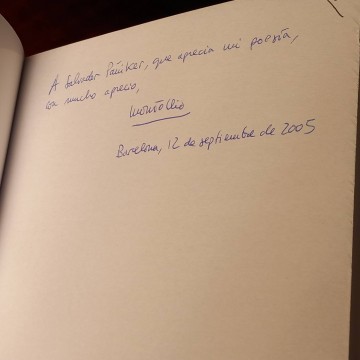 A Salvador Pániker, que aprecia mi poesía,
con mucho aprecio,
Barcelona, 12 de septiembre de 2005